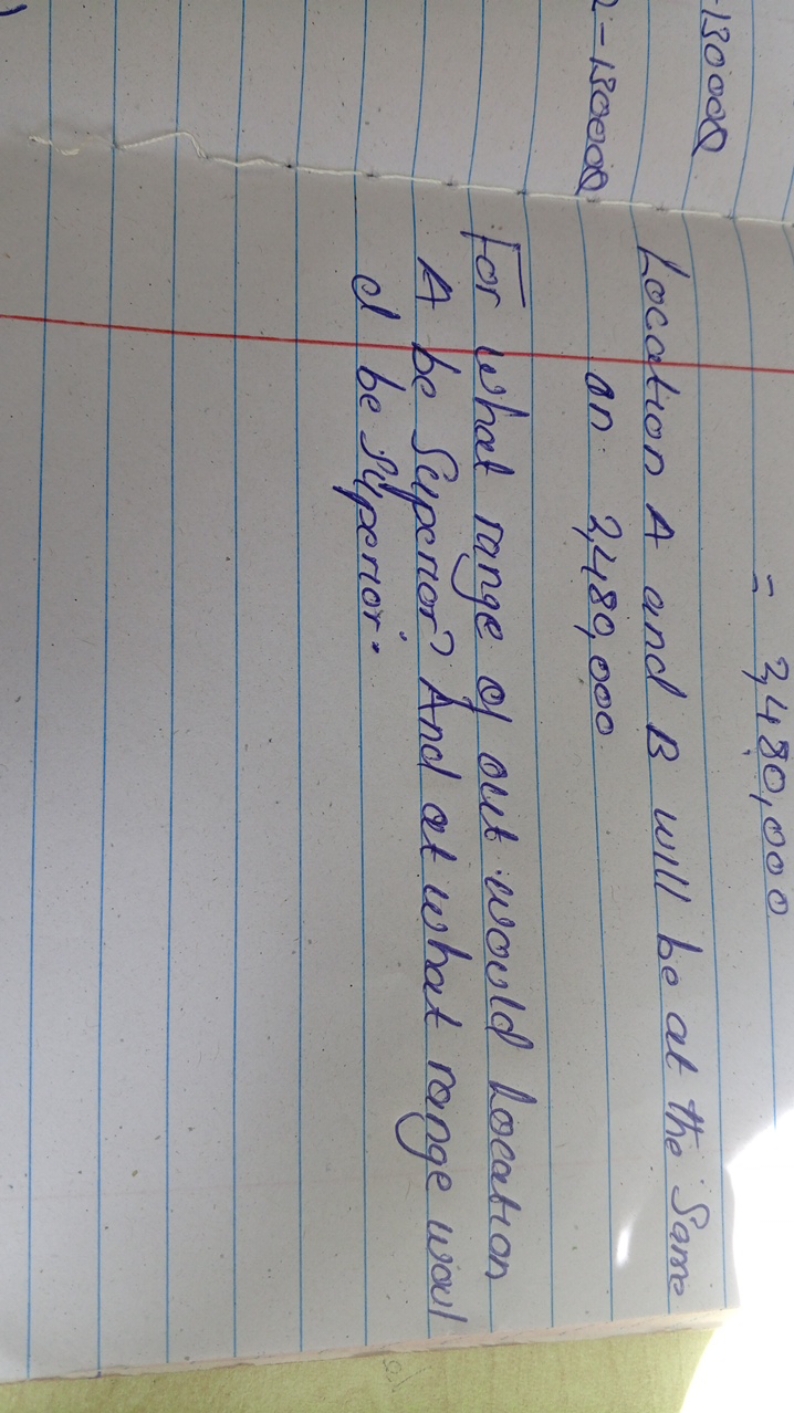 -130000
2-130000
= 2,480,000
Location A and B will be at the Same
on 2,480,000
For what range of out would Location
A be Superior? And at what range woul
d be Superior.